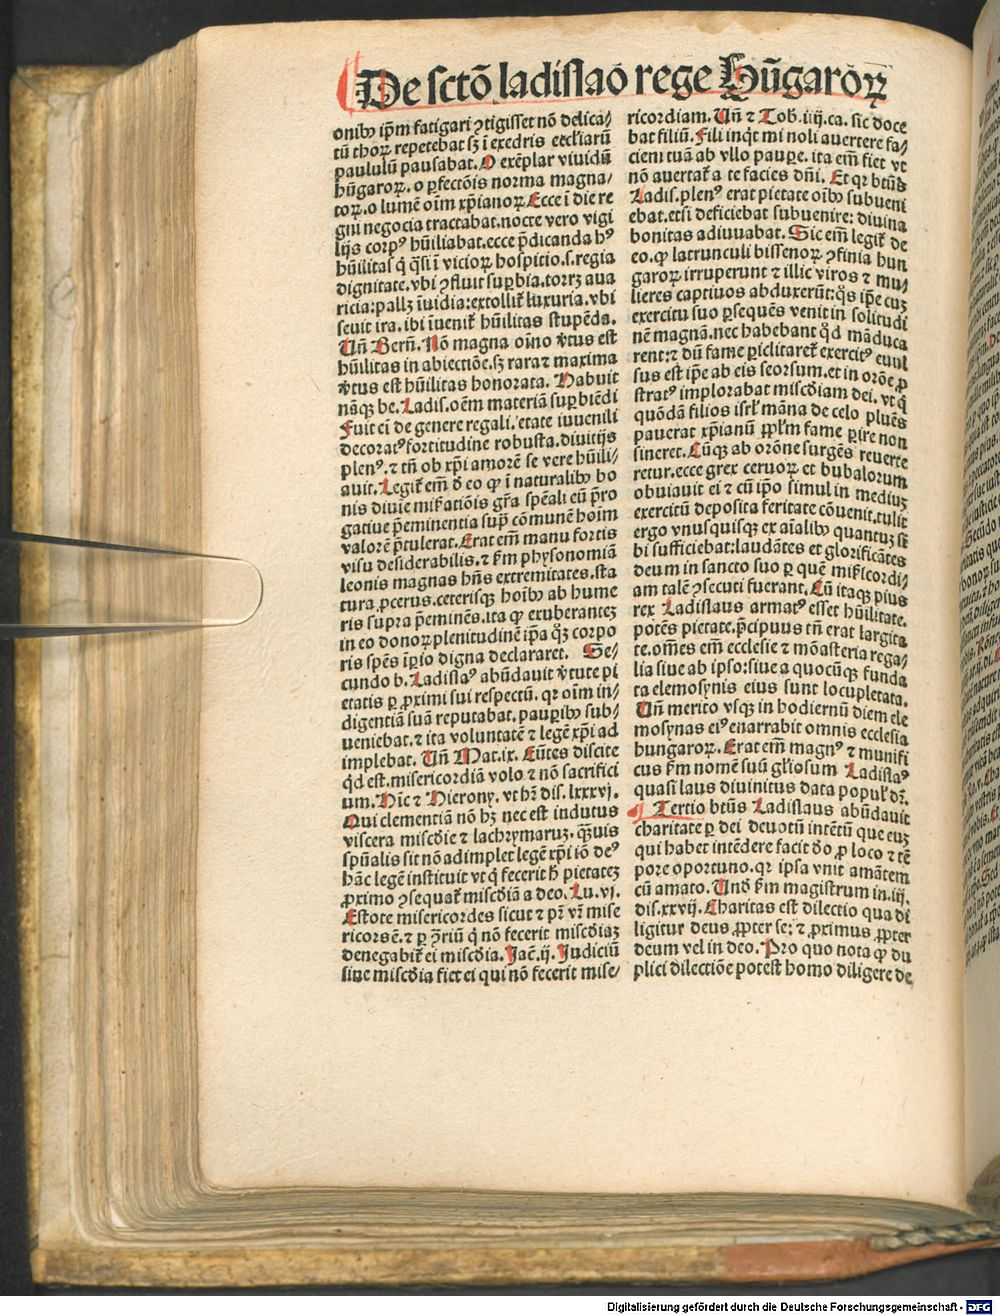 De sctō ladislao rege Hūgaroꝝ
onibꝰ ip̄m fatigari ꝯtigisset nō delica⸗
tū thoꝝ repetebat sꝫ ī exedris eccl̓iarū
paululū pausabat. O exēplar viuidū
hūgaroꝝ. o ꝑfectōis norma magna⸗
toꝝ. o lumē oīm xp̄ianoꝝ. Ecce ī die re
gni negocia tractabat. nocte vero vigi
lijs corpꝰ hūiliabat. ecce p̄dicanda hꝰ
hūilitas q̇ q̄si ī vicioꝝ hospitio. s. regia
dignitate. vbi ꝯfluit suꝑbia. torrꝫ aua
ricia: pallꝫ īuidia: extollit̉ luxuria. vbi
seuit ira. ibi īuenit̉ hūilitas stupēda.
Un̄ Bern̄. Nō magna oīno v̓tus est
hūilitas in abiectiōe. sꝫ rara ⁊ maxima
v̓tus est hūilitas honorata. Habuit
nāqꝫ be. Ladis. oēm materiā suꝑbiēdi
Fuit ei de genere regali. etate iuuenili
decoratꝰ fortitudine robusta. diuitijs
plenꝰ. ⁊ tn̄ ob xp̄i amorē se vere hūili⸗
auit. Legit̉ em̄ d̓ eo ꝙ ī naturalibꝰ bo
nis diuīe mis̓atiōis gr̄a spēali eū p̄ro
gatiue p̄eminentia supͣ cōmunē hoīm
valorē p̄tulerat. Erat em̄ manu fortis
visu desiderabilis. ⁊ ẜm physonomiā
leonis magnas hn̄s extremitates. sta
tura ꝓcerus. ceterisqꝫ hoībꝰ ab hume
ris supra p̄eminēs. ita ꝙ exuberantez
in eo donoꝝ plenitudinē ip̄a qꝫ corpo
ris spēs īꝑio digna declararet. Se⸗
cundo b. Ladislaꝰ abūdauit v̓tute pi
etatis ꝑ ꝓximi sui respectū. qꝛ oīm in⸗
digentiā suā reputabat. pauꝑibꝰ sub⸗
ueniebat. ⁊ ita voluntatē ⁊ legē xp̄i ad
implebat. Un̄ Mat. ix. Eūtes discite
qd̓ est. misericordiā volo ⁊ nō sacrifici
um. Hīc ⁊ Hierony. vt hꝫ dis. lxxxvj.
Qui clementiā nō hꝫ nec est indutus
viscera misc̄die ⁊ lachrymaruꝫ. q̄ꝫuis
spūalis sit nō adimplet legē xp̄i iō deꝰ
hāc legē instituit vt q̇ fecerit h̓ pietatez
ꝓximo ꝯsequat̉ misc̄diā a deo. Lu. vj.
Estote misericordes sicut ⁊ pr̄ vr̄ mise
ricors ē. ⁊ ꝑ ꝯ̄riū q̇ nō fecerit misc̄diaꝫ
denegabit̉ ei misc̄dia. Jac̄. ij. Judiciū
sine misc̄dia fiet ei qui nō fecerit mise⸗
ricordiam. Un̄ ⁊ Tob. iiij. ca. sic doce
bat filiū. Fili inqͥt mi noli auertere fa⸗
ciem tuā ab vllo pauꝑe. ita em̄ fiet vt
nō auertat̉ a te facies dn̄i. Et qꝛ btūs
Ladis. plenꝰ erat pietate oībꝰ subueni
ebat. etsi deficiebat subuenire: diuina
bonitas adiuuabat. Sic em̄ legit̉ de
eo. ꝙ latrunculi bissenoꝝ ꝯfinia hun
garoꝝ irruperunt ⁊ illic viros ⁊ mu⸗
lieres captiuos abduxerūt: q̄s ip̄e cuꝫ
exercitu suo ꝑsequēs venit in solitudi
nē magnā. nec habebant qd̓ māduca
rent: ⁊ dū fame ꝑiclitaret̉ exercitꝰ euul
sus est ip̄e ab eis seorsum. et in orōe ꝓ
stratꝰ implorabat misc̄diam dei. vt q̇
quōdā filios isrl̓ māna de celo pluēs
pauerat xp̄ianū ꝓpl̓m fame ꝑire non
sineret. Cūqꝫ ab orōne surgēs reuerte
retur. ecce grex ceruoꝝ et bubalorum
obuiauit ei ⁊ cū ip̄o simul in mediuꝫ
exercitū deposita feritate cōuenit. tulit
ergo vnusquisqꝫ ex aīalibꝰ quantuꝫ si
bi sufficiebat: laudātes et glorificātes
deum in sancto suo ꝑ quē mis̓icordi⸗
am talē ꝯsecuti fuerant. Cū itaqꝫ pius
rex Ladislaus armatꝰ esset hūilitate.
potēs pietate. p̄cipuus tn̄ erat largita
te. om̄es em̄ ecclesie ⁊ mōasteria rega⸗
lia siue ab ipso: siue a quocūqꝫ funda
ta elemosynis eius sunt locupletata.
Un̄ merito vsqꝫ in hodiernū diem ele
mosynas eiꝰ enarrabit omnis ecclesia
hungaroꝝ. Erat em̄ magnꝰ ⁊ munifi
cus ẜm nomē suū gl̓iosum Ladislaꝰ
quasi laus diuinitus data popul̓ dr̄.
¶ Tertio btūs Ladislaus abūdauit
charitate ꝑ dei deuotū intētū que euꝫ
qui habet intēdere facit d̓o ꝓ loco ⁊ tē
pore oportuno. qꝛ ipsa vnit amātem
cū amato. Und̓ ẜm magistrum in. iij.
dis. xxvij. Charitas est dilectio qua di
ligitur deus ꝓpter se: ⁊ ꝓximus ꝓpter
deum vel in deo. Pro quo nota ꝙ du
plici dilectiōe potest homo diligere de
Digitalisierung gefördert durch die Deutsche Forschungsgemeinschaft - DFG